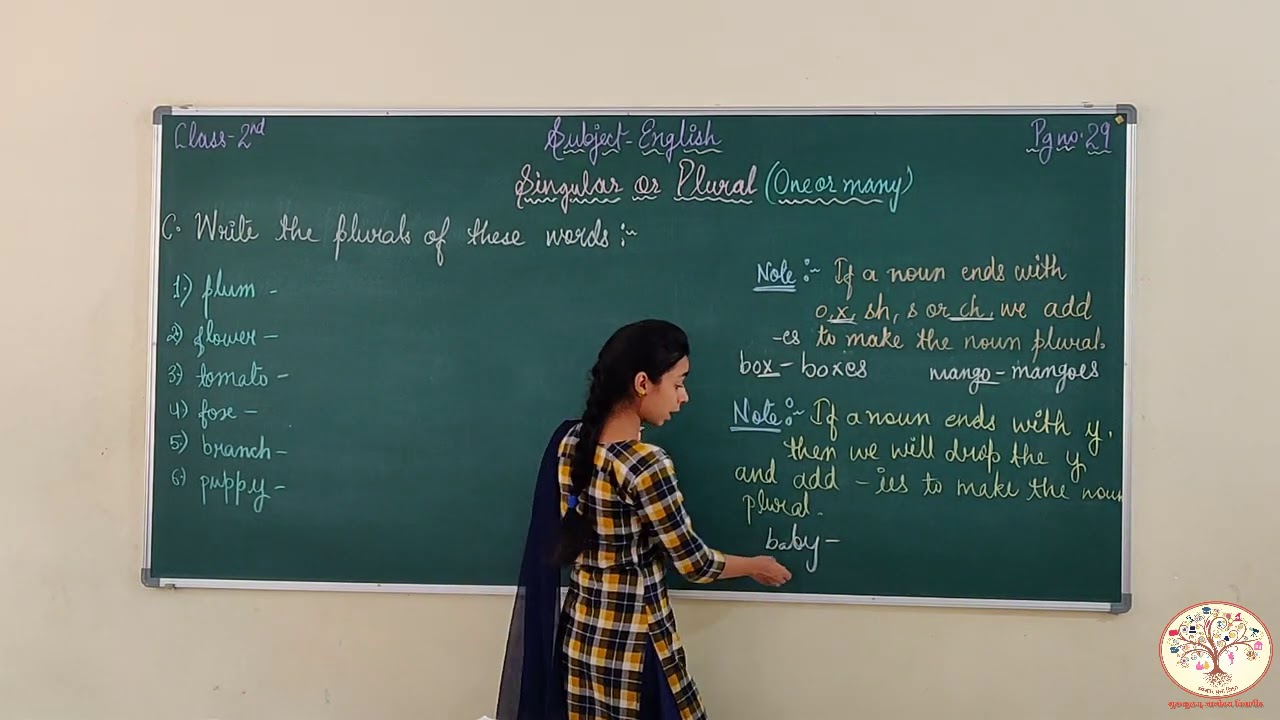 Class-2nd
Subject-English
Pg no. 29
Singular or Plural (One or many)
C. Write the plurals of these words :-
1) plum -
2) flower -
3) tomato -
4) fox -
5) branch -
6) puppy -
Note :- If a noun ends with
o, x, sh, s or ch, we add
-es to make the noun plural.
box - boxes mango - mangoes
Note :- If a noun ends with y,
then we will drop the y
and add - ies to make the noun
plural.
baby -